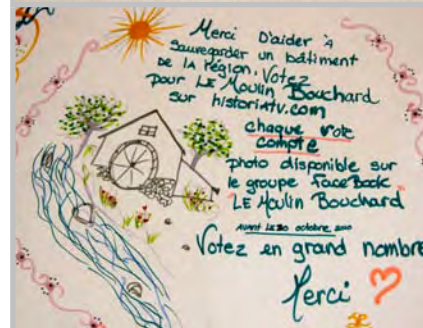 Merci D'aider à
sauvegarder un bâtiment
de la région. Votez
pour LE Moulin Bouchard
sur historiatv.com
chaque vote
compte
photo disponible sur
le groupe FaceBook
LE Moulin Bouchard
AVANT LE 20 octobre 2010
Votez en grand nombre
Merci